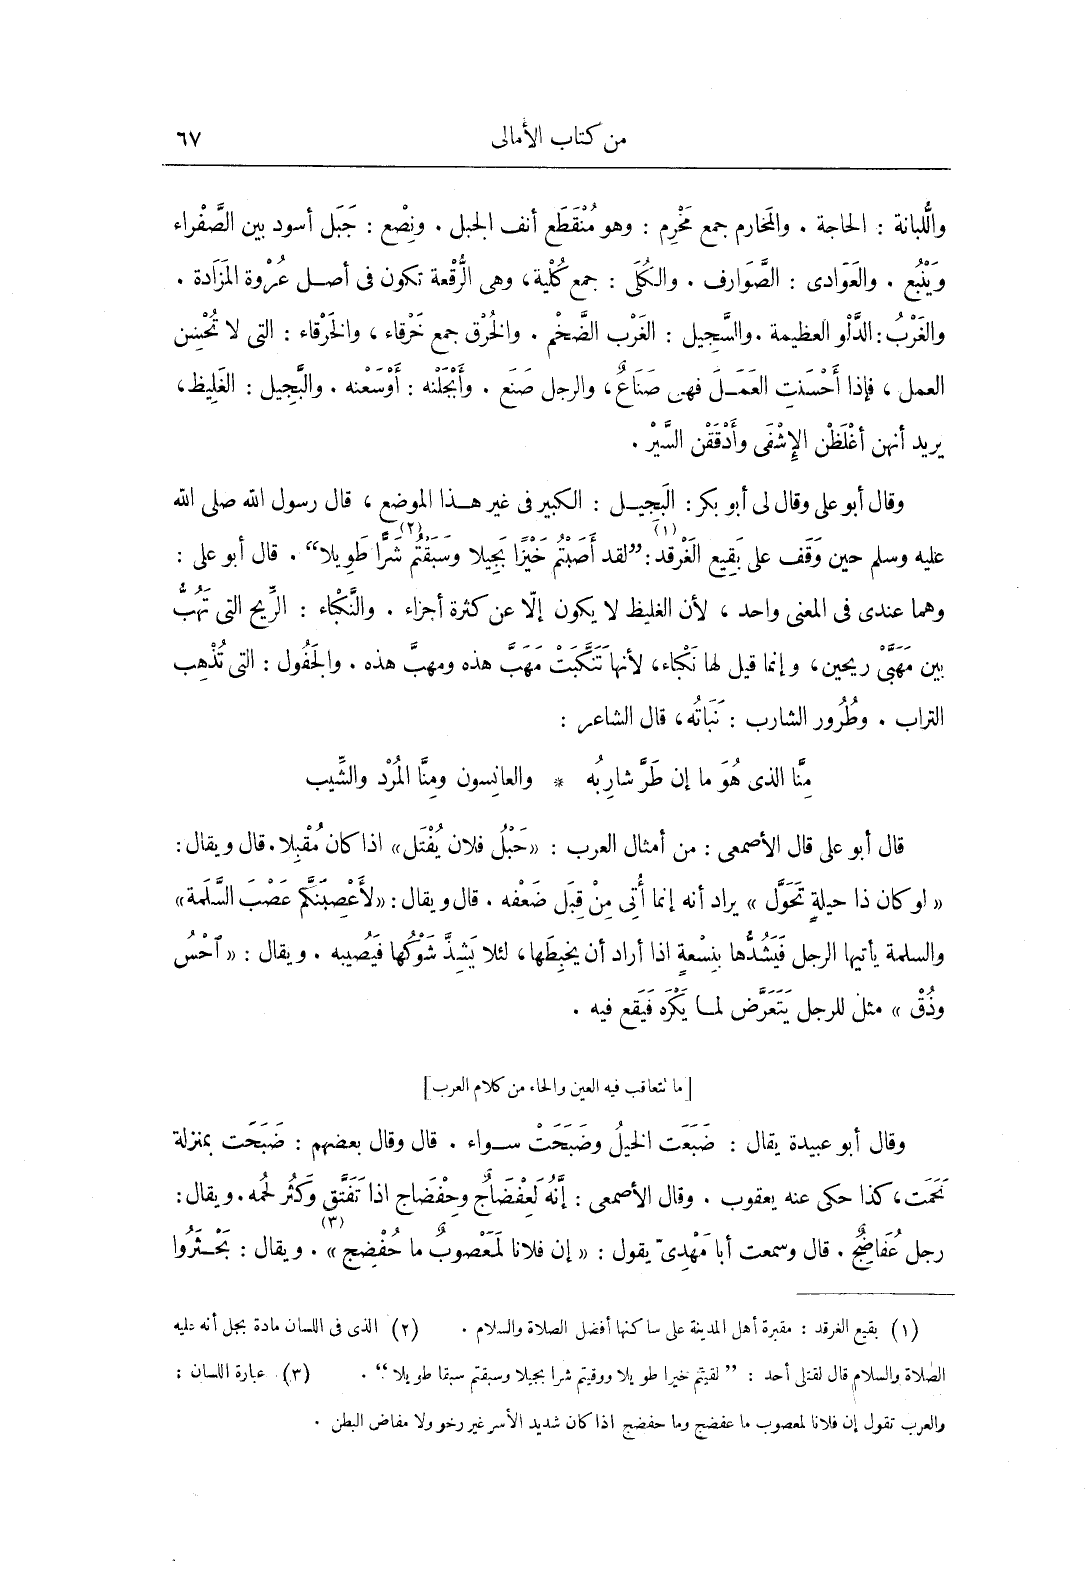 من كتاب الأمالى ٦٧
واللُّبانة : الحاجة . والمَخارم جمع مَخْرِم : وهو مُنْقَطَع أنف الجبل . ونِصْع : جَبَل أسود بين الصَّفْراء
وَيَنْبُع . والعَوَادى : الصَّوارف . والكُلَى : جمع كُلْية، وهى الرُّقعة تكون فى أصل عُرْوة المَزَادة .
والغَرْبُ : الدَّلْو العظيمة . والسَّجِيل : الغَرْب الضَّخْم . والخُرْق جمع خَرْقاء ، والخَرْقاء : التى لا تُحْسِن
العمل ، فإذا أَحْسَنتِ العَمَلَ فهى صَنَاعٌ، والرجل صَنَع . وأَنْجَلْنَه : أَوْسَعْنه . والبَّجِيل : الغَلِيظ،
يريد أنهن أغْلَظْن الإشْفَى وأَدْقَقْن السَّيْر .
وقال أبو على وقال لى أبو بكر : البَجِيل : الكبير فى غير هذا الموضع ، قال رسول الله صلى الله
عليه وسلم حين وَقَف على بَقِيع الغَرْقد (١) : ”لقد أَصَبْتُم خَيْرًا بَجِيلا وسَبَقْتُم شَرًّا طَوِيلا“ (٢) . قال أبو على :
وهما عندى فى المعنى واحد ، لأن الغليظ لا يكون إلّا عن كثرة أجزاء . والنَّكْباء : الرِّيح التى تَهُبُّ
بين مَهَبَّىْ ريحين، وإنما قيل لها نَكْباء، لأنها تَنَكَّبَتْ مَهَبَّ هذه ومهبَّ هذه . والجَفُول : التى تُذْهِب
التراب . وطُرُور الشارب : نَبَاتُه، قال الشاعر :
مِنَّا الذى هُوَ ما إن طَرَّ شارِبُه * والعانِسون ومِنَّا المُرْد والشِّيب
قال أبو على قال الأصمعى : من أمثال العرب : «حَبْلُ فلان يُفْتَل» اذا كان مُقْبِلا . قال ويقال :
« لو كان ذا حيلةٍ تَحَوَّل » يراد أنه إنما أُتِى مِنْ قِبَل ضَعْفه . قال ويقال : «لأَعْصِبَنَّكم عَصْبَ السَّلَمة»
والسلمة يأتيها الرجل فَيَشُدُّها بِنِسْعةٍ اذا أراد أن يخبِطَها، لئلا يَشِذَّ شَوْكُها فيُصيبه . ويقال : « اَحْسُ
وذُقْ » مثل للرجل يَتَعَرَّض لما يَكْرَه فَيَقع فيه .
[ما تتعاقب فيه العين والحاء من كلام العرب]
وقال أبو عبيدة يقال : ضَبَعَت الخيلُ وضَبَحَتْ سواء . قال وقال بعضهم : ضَبَحَت بمنزلة
نَحَمَت، كذا حكى عنه يعقوب . وقال الأصمعى : إنَّه لَعِفْضَاجٌ وحِفْضَاج اذا تَفَتَّق وكَثُر لحمُه . ويقال :
رجل عُفَاضِجٌ . قال وسمعت أبا مَهْدِىّ يقول : « إن فلانا لَمَعْصوبٌ ما حُفْضِج » (٣) . ويقال : بَحْثَرُوا
(١) بقيع الغرقد : مقبرة أهل المدينة على ساكنها أفضل الصلاة والسلام . (٢) الذى فى اللسان مادة بجل أنه عليه
الصلاة والسلام قال لقتلى أحد : ” لقيتم خيرا طويلا ووقيتم شرا بجيلا وسبقتم سبقا طويلا “ . (٣) عبارة اللسان :
والعرب تقول إن فلانا لمعصوب ما عفضج وما حفضج اذا كان شديد الأسر غير رخو ولا مفاض البطن .